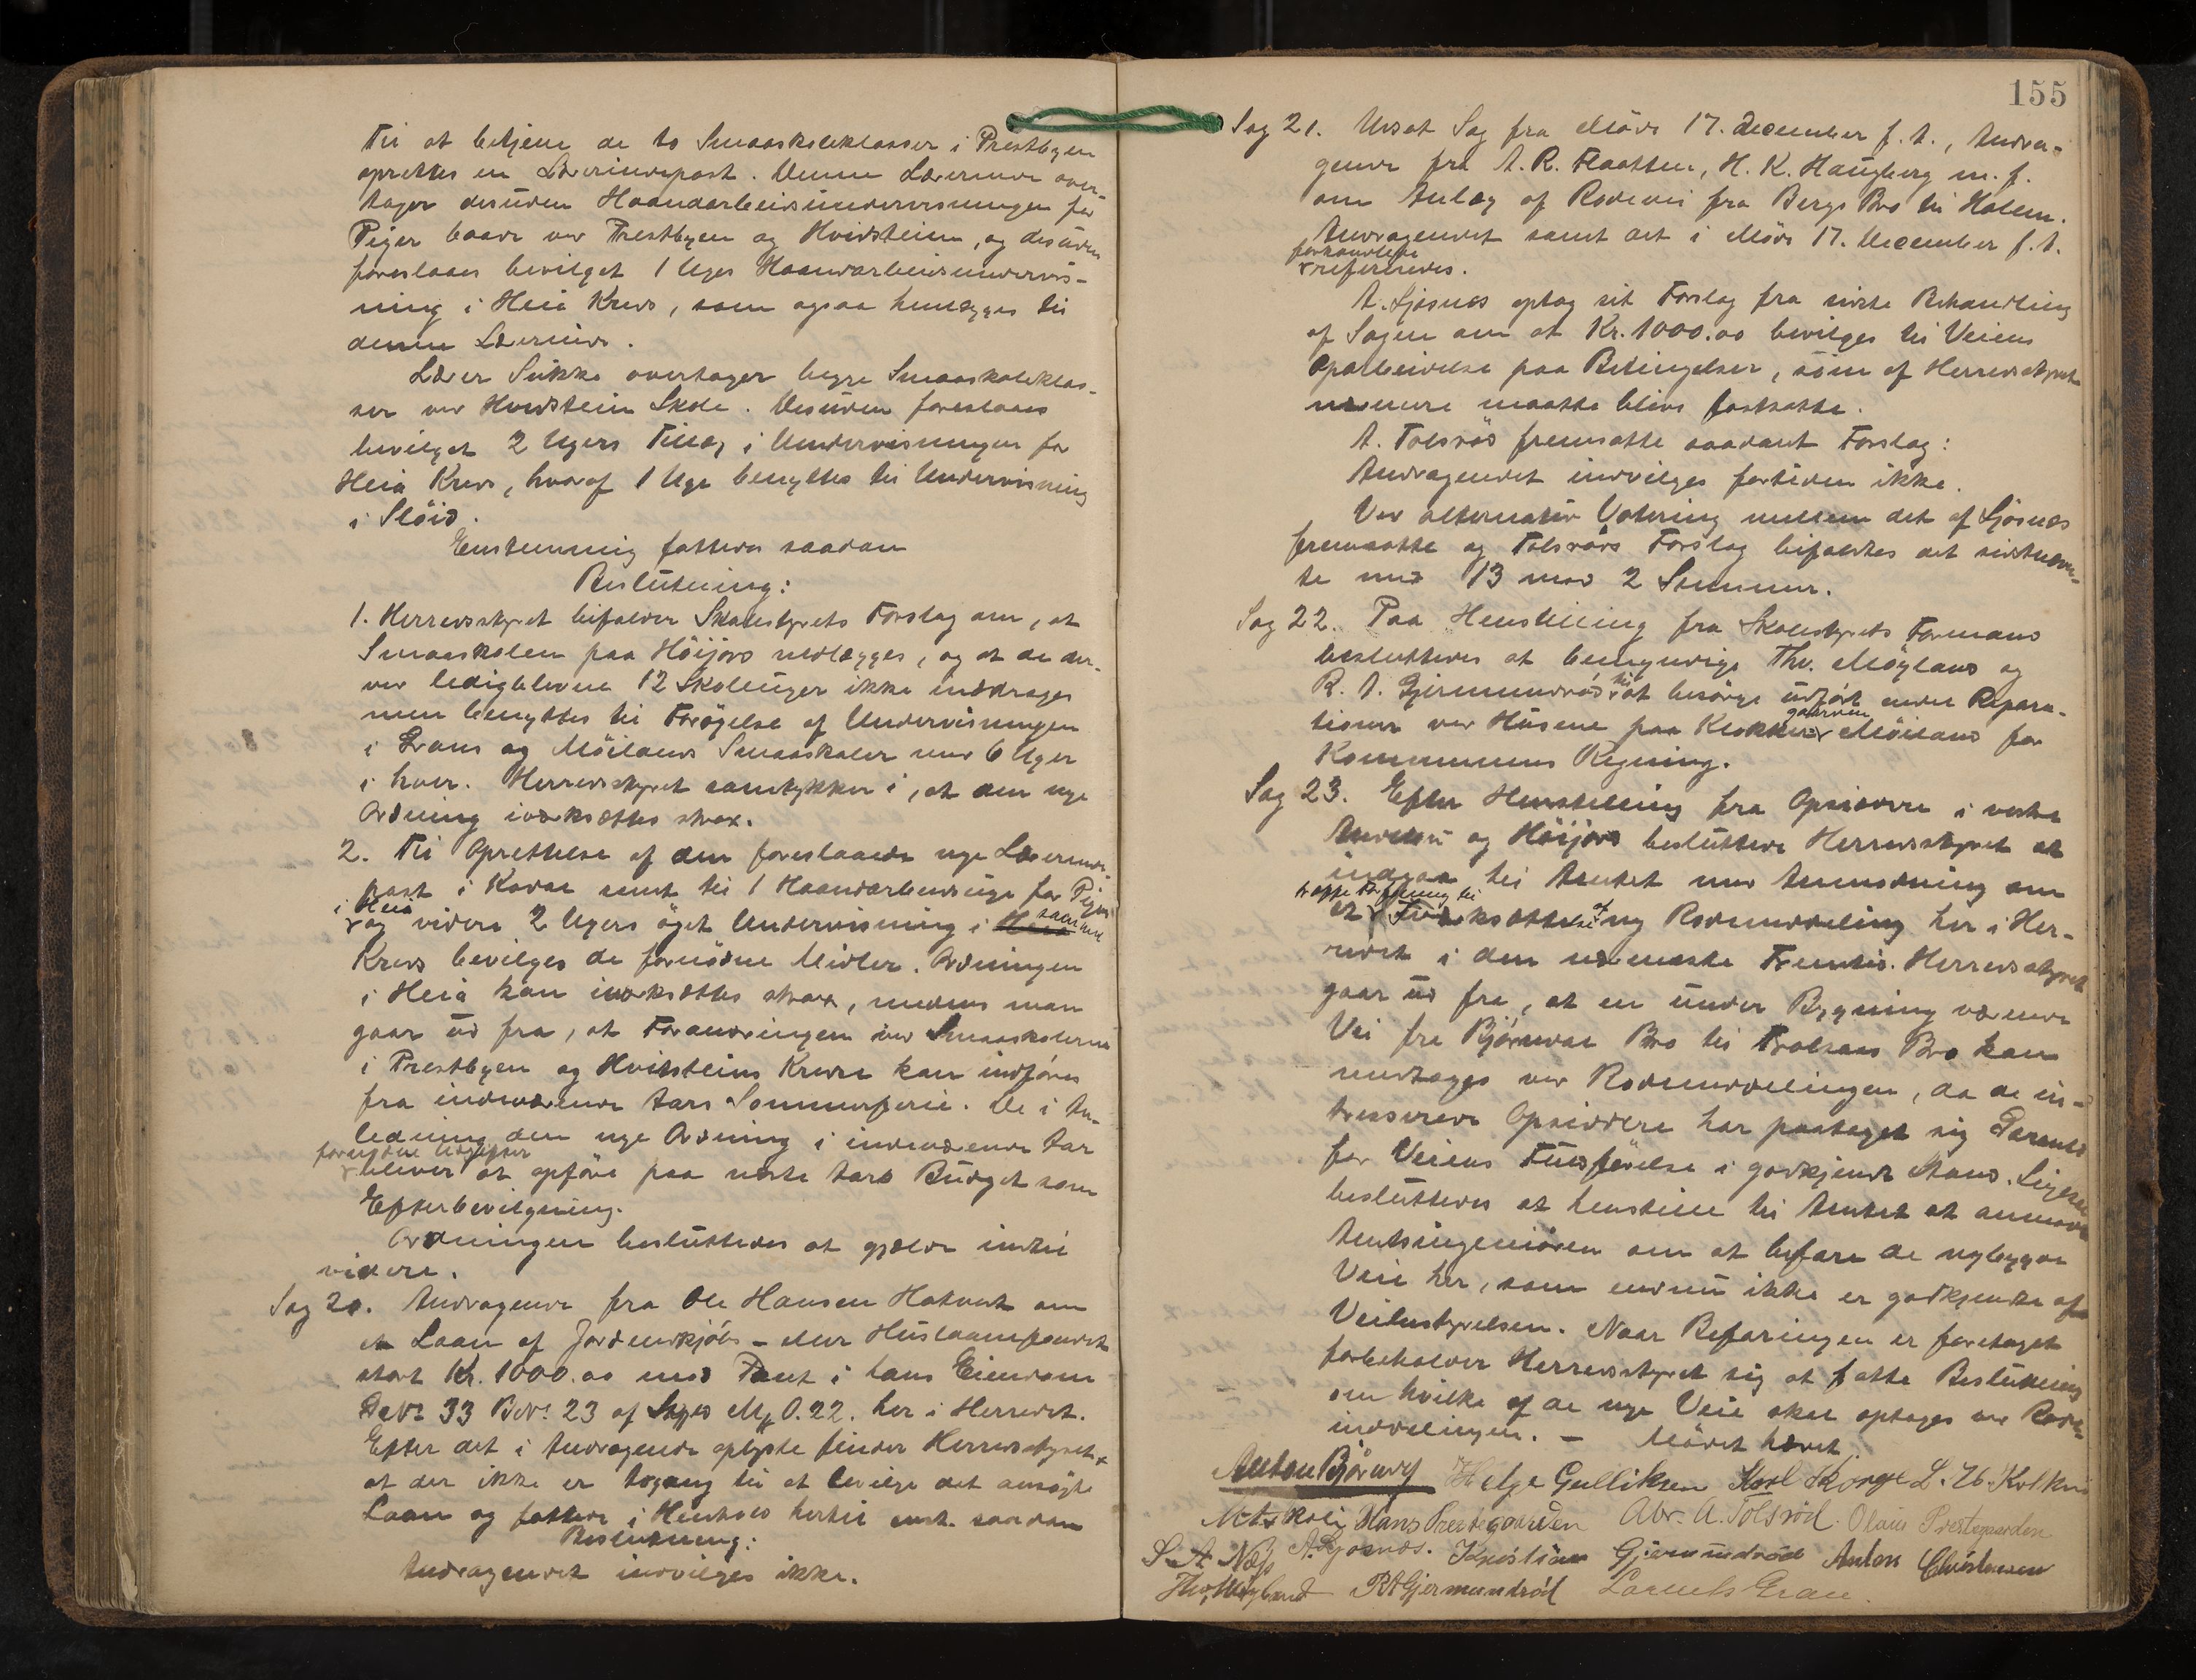 Til at betjene de to Smaaskoleklasser i Prestbyen
oprettes en Lærerindepost. Denne Lærerinde over-
tager desuden Haandarbeidsundervisningen for
Piger baade ved Prestbyen og Hvidstein, og desuden
foreslaaes bevilget 1 Uges Haandarbeidsundervis-
ning i Heia Kreds, som ogsaa henlægges til
denne Lærerinde.
Lærer Sukke overtager begge Smaaskoleklas-
ser ved Hvidstein Skole. Desuden foreslaaes
bevilget 2 Ugers Tillæg i Undervisningen for
Heia Kreds, hvoraf 1 Uge benyttes til Undervisning
i Slöid.
Enstemmig fattedes saadan
Beslutning:
1. Herredsstyret bifalder Skolestyrets Forslag om, at
Smaaskolen paa Höijord nedlægges, og at de der-
ved ledigblevne 12 Skoleuger ikke inddrages
men benyttes til Forögelse af Undervisningen
i Gran og Möilands Smaaskoler med 6 Uger
i hver. Herredsstyret samtykker i, at den nye
Ordning iværksættes strax.
2. Til Oprettelse af den foreslaaede nye Lærerinde-
post i Kodal samt til 1 Haandarbeidsuge for Piger
i Heia
og videre 2 Ugers öget Undervisning i Heia samme
Kreds bevilges de fornödne Midler. Ordningen
i Heia kan iværksættes strax, medens man
gaar ud fra, at Forandringen ved Smaaskolerne
i Prestbyen og Hvidsteins Kredse kan indföres
fra indeværende Aars Sommerferie. De i An-
ledning den nye Ordning i indeværende Aar
fornödne Udgifter
bliver at opföre paa næste Aars Budget som
Efterbevilgning.
Ordningen besluttedes at gjælde indtil
videre.
Sag 20. Andragende fra Ole Hansen Hotvedt om
et Laan af Jordindkjöbs- eller Huslaanfondet
stort Kr. 1000.00 med Pant i hans Eiendom
G.No. 33 B.No. 23 af Skyld Mk 0.22. her i Herredet.
Efter det i Andragende oplyste finder Herredsstyret,
at der ikke er Adgang til at bevilge det ansögte
Laan og fattede i Henhold hertil enst. saadan
Beslutning:
Andragendet indvilges ikke.
155
Sag 21. Udsat Sag fra Möde 17. December f. A., Andra-
gende fra A. R. Flaatten, H. K. Haugberg m. f.
om Anlæg af Rodevei fra Bergs Bro til Holem.
Andragendet samt det i Möde 17. December f. A.
forhandlede
refereredes.
A. Gjösnæs optog sit Forslag fra sidste Behandling
af Sagen om at Kr. 1000.00 bevilges til Veiens
Oparbeidelse paa Betingelser, som af Herredsstyret
nærmere maatte blive fastsatte.
A. Tolsröd fremsatte saadant Forslag:
Andragendet indvilges fortiden ikke.
Ved alternativ Votering mellem det af Gjösnæs
fremsatte og Tolsröds Forslag bifaldtes det sidstnævn-
te med 13 mod 2 Stemmer.
Sag 22. Paa Henstilling fra Skolestyrets Formand
besluttedes at bemyndige Thv. Möyland og
R. A. Gjermundröd til at besörge udfört endel Repara-
tioner ved Husene paa Klokkergaarden Möiland for
Kommunens Regning.
Sag 23. Efter Henstilling fra Opsiddere i vestre
Andebu og Höijord besluttede Herredsstyret at
indgaa til Amtet med Anmodning om
at Iværksættelse af ny Rodeinddeling her i Her-
redet i den nærmeste Fremtid. Herredsstyret
gaar ud fra, at en under Bygning værende
Vei fra Björndal Bro til Trolsaas Bro kan
medtages ved Rodeinddelingen, da de in-
teresserede Opsiddere har paataget sig Garanti
for Veiens Fuldförelse i godkjendt Stand. Ligesaa
besluttedes at henstille til Amtet at anmode
Amtsingeniören om at befare de nybyggede
Veie her, som endnu ikke er godkjendte af
Veibestyrelsen. Naar Befaringen er foretaget
forbeholder Herredsstyret sig at fatte Beslutning
om hvilke af de nye Veie skal optages ved Rode-
inddelingen. — Mödet hævet.
Anton Björndal Helge Gulliksen Karl Skorge
Hans Prestegaarden Abr. A. Tolsröd. Olaus Prestegaarden
S. A. Næss A. Gjösnæs. Kristian Gjermundröd Anton Christensen
Thv. Möyland R A Gjermundröd Lornts Gran.